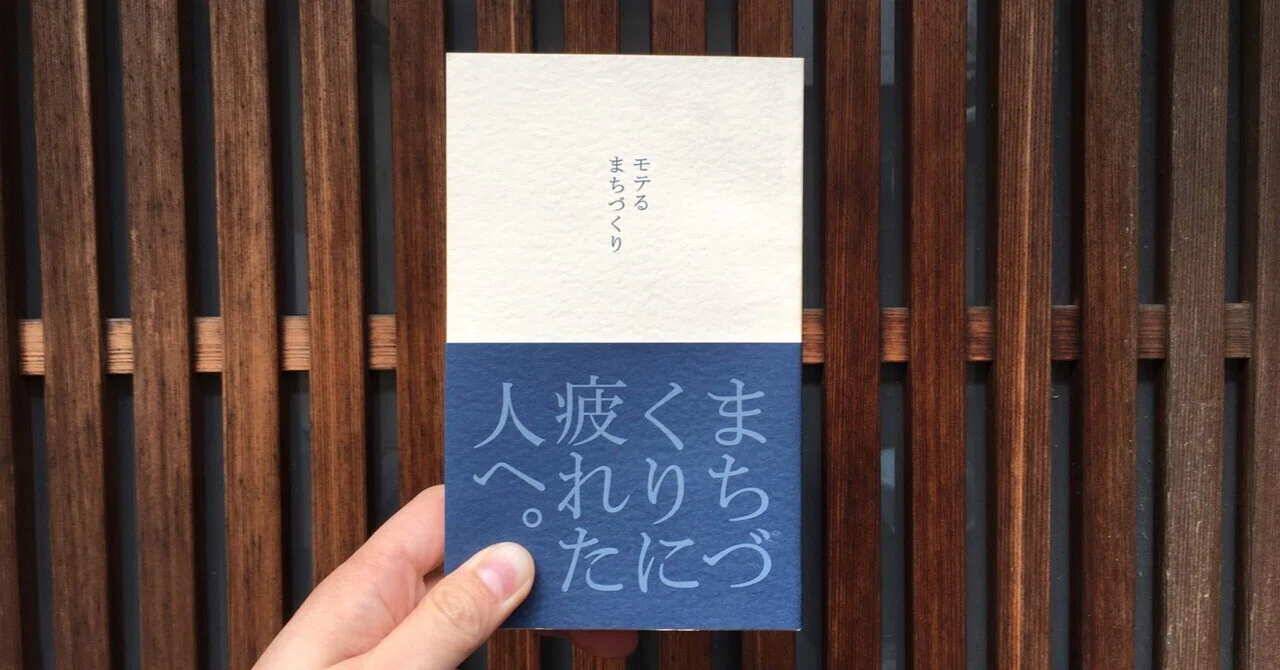 モテる
まちづくり
まちづ
くりに
疲れた
人へ。